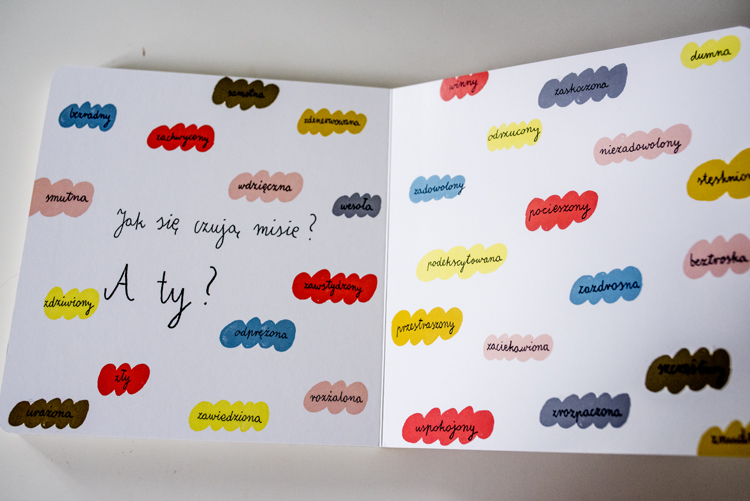 samotna
bezradny
zdenerwowana
zachwycony
wdzięczna
smutna
wesoła
Jak się czują misie?
A ty?
zawstydzony
zdziwiony
odprężona
zły
rozżalona
urażona
zawiedziona
dumna
winny
zaskoczona
odrzucony
niezadowolony
stęsknion
zadowolony
pocieszony
beztroska
podekscytowana
zazdrosna
przestraszony
zaciekawiona
zrozpaczona
uspokojony